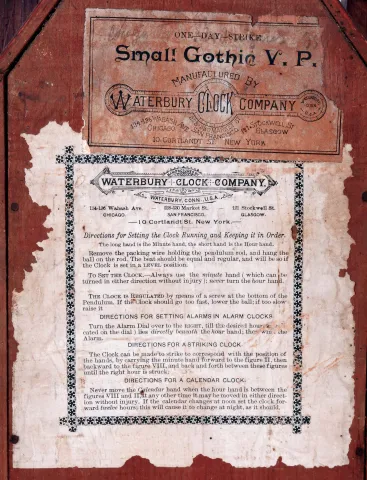 ONE-DAY-STRIKE.
Small Gothic V. P.
MANUFACTURED BY
WATERBURY CLOCK COMPANY
134-136 WABASH AVE. SAN FRANCISCO 121 STOCKWELL ST.
CHICAGO GLASGOW
10 CORTLANDT ST. NEW YORK
WATERBURY CLOCK COMPANY,
WATERBURY, CONN., U.S.A.
134-136 Wabash Ave. 528-530 Market St. 121 Stockwell St.
CHICAGO. SAN FRANCISCO. GLASGOW.
—10 Cortlandt St. New York.—
Directions for Setting the Clock Running and Keeping it in Order.
The long hand is the Minute hand, the short hand is the Hour hand.
Remove the packing wire holding the pendulum rod, and hang the
ball on the rod. The beat should be equal and regular, and will be so if
the Clock is set in a LEVEL position.
To SET THE CLOCK.—Always use the minute hand (which can be
turned in either direction without injury); never turn the hour hand.
THE CLOCK IS REGULATED by means of a screw at the bottom of the
Pendulum. If the clock should go too fast, lower the ball; if too slow
raise it
DIRECTIONS FOR SETTING ALARMS IN ALARM CLOCKS.
Turn the Alarm Dial over to the RIGHT, till the desired hour
cated on the dial) lies directly beneath the hour hand; then wind the
Alarm.
DIRECTIONS FOR A STRIKING CLOCK.
The Clock can be made to strike to correspond with the position of
the hands, by carrying the minute hand forward to the figure II, then
backward to the figure VIII, and back and forth between these figures
until the right hour is struck.
DIRECTIONS FOR A CALENDAR CLOCK.
Never move the Calendar hand when the hour hand is between the
figures VIII and II; at any other time it may be moved in either direct-
ion without injury. If the calendar changes at noon set the clock for-
ward twelve hours; this will cause it to change at night, as it should.